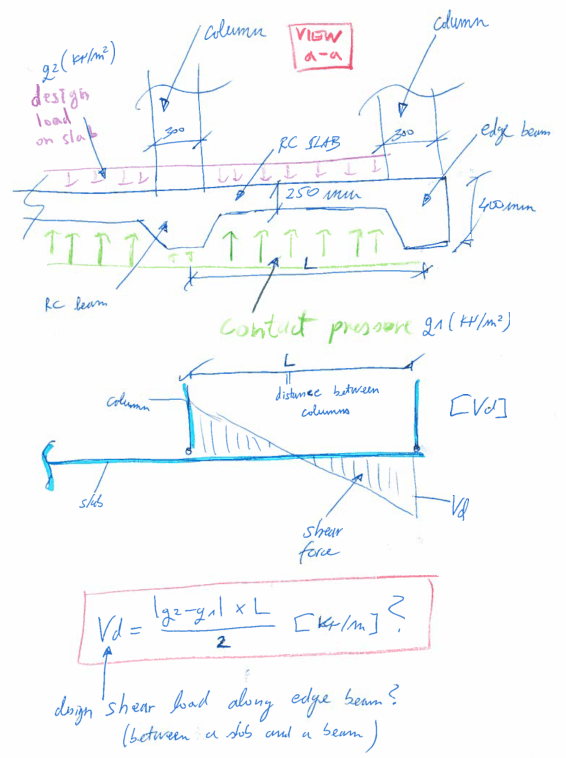 column
VIEW
a-a
column
g2 (KN/m²)
design
load
on slab
300
300
RC SLAB
edge beam
250 mm
400mm
L
RC beam
contact pressure g1 (KN/m²)
L
distance between
columns
column
[Vd]
slab
Vd
shear
force
Vd = |g2-g1| × L / 2 [KN/m] ?
design shear load along edge beam?
(between a slab and a beam)